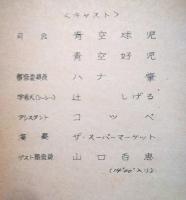 ＜キャスト＞
司会 青空球児
青空好児
審査委員長 ハナ肇
辻しげる
アシスタント コッペ
演奏 ザ・スーパーマーケット
ゲスト審査員 山口百恵